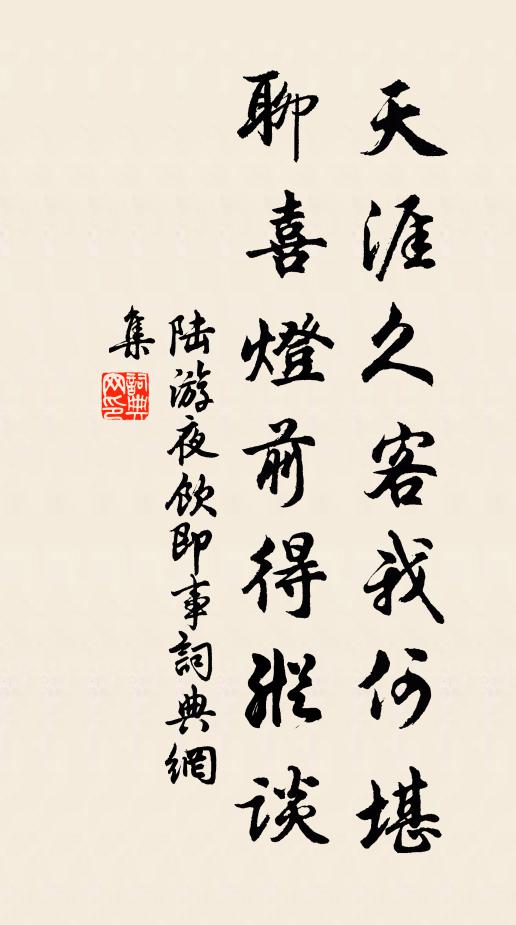 天涯久客我何堪
聊喜燈前得縱谈
陆游夜飲即事詞典網
集
詞典网印